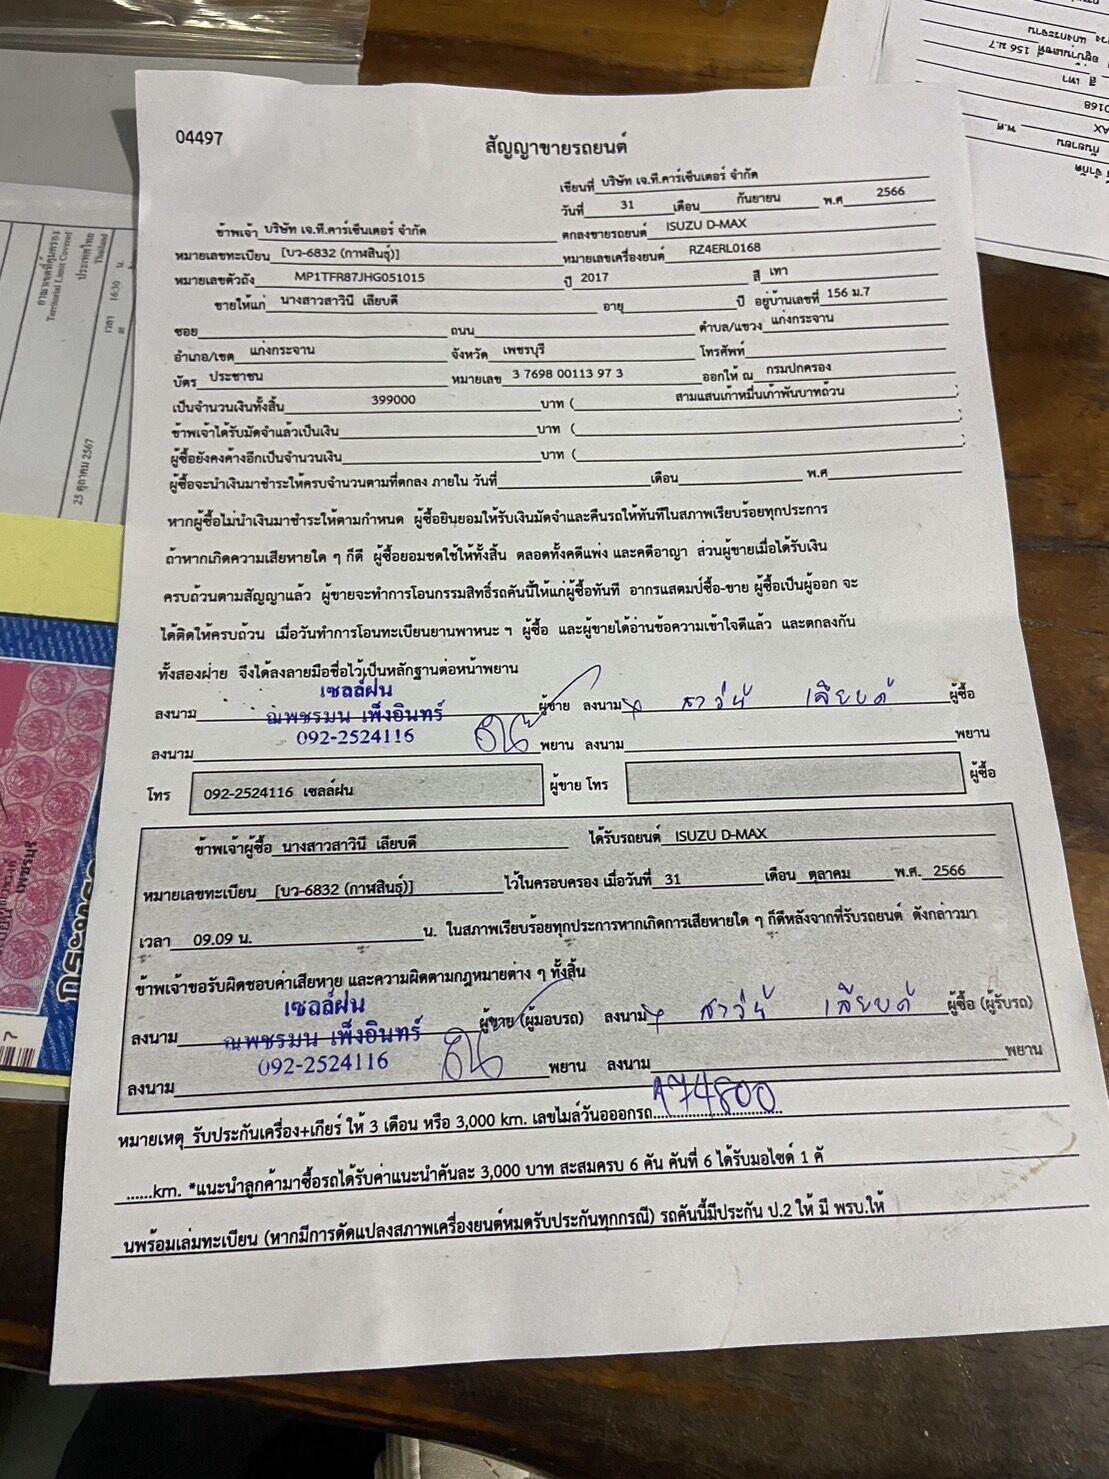 04497
สัญญาขายรถยนต์
เขียนที่ บริษัท เจ.ที.คาร์เซ็นเตอร์ จำกัด
วันที่ 31 เดือน กันยายน พ.ศ 2566
ข้าพเจ้า บริษัท เจ.ที.คาร์เซ็นเตอร์ จำกัด ตกลงขายรถยนต์ ISUZU D-MAX
หมายเลขทะเบียน [บว-6832 (กาฬสินธุ์)] หมายเลขเครื่องยนต์ RZ4ERL0168
หมายเลขตัวถัง MP1TFR87JHG051015 ปี 2017 สี เทา
ขายให้แก่ นางสาวสาวินี เลียบดี อายุ ปี อยู่บ้านเลขที่ 156 ม.7
ซอย ถนน ตำบล/แขวง แก่งกระจาน
อำเภอ/เขต แก่งกระจาน จังหวัด เพชรบุรี โทรศัพท์
บัตร ประชาชน หมายเลข 3 7698 00113 97 3 ออกให้ ณ กรมปกครอง
เป็นจำนวนเงินทั้งสิ้น 399000 บาท ( สามแสนเก้าหมื่นเก้าพันบาทถ้วน )
ข้าพเจ้าได้รับมัดจำแล้วเป็นเงิน บาท ( )
ผู้ซื้อยังคงค้างอีกเป็นจำนวนเงิน บาท ( )
ผู้ซื้อจะนำเงินมาชำระให้ครบจำนวนตามที่ตกลง ภายใน วันที่ เดือน พ.ศ
หากผู้ซื้อไม่นำเงินมาชำระให้ตามกำหนด ผู้ซื้อยินยอมให้รับเงินมัดจำและคืนรถให้ทันทีในสภาพเรียบร้อยทุกประการ
ถ้าหากเกิดความเสียหายใด ๆ ก็ดี ผู้ซื้อยอมชดใช้ให้ทั้งสิ้น ตลอดทั้งคดีแพ่ง และคดีอาญา ส่วนผู้ขายเมื่อได้รับเงิน
ครบถ้วนตามสัญญาแล้ว ผู้ขายจะทำการโอนกรรมสิทธิ์รถคันนี้ให้แก่ผู้ซื้อทันที อากรแสตมป์ซื้อ-ขาย ผู้ซื้อเป็นผู้ออก จะ
ได้ติดให้ครบถ้วน เมื่อวันทำการโอนทะเบียนยานพาหนะ ฯ ผู้ซื้อ และผู้ขายได้อ่านข้อความเข้าใจดีแล้ว และตกลงกัน
ทั้งสองฝ่าย จึงได้ลงลายมือชื่อไว้เป็นหลักฐานต่อหน้าพยาน
เซลล์ฝน
ลงนาม ณพชรมน เพ็งอินทร์ ผู้ขาย ลงนาม สาวินี เลียบดี ผู้ซื้อ
092-2524116
ลงนาม พยาน ลงนาม พยาน
โทร 092-2524116 เซลล์ฝน ผู้ขาย โทร ผู้ซื้อ
ข้าพเจ้าผู้ซื้อ นางสาวสาวินี เลียบดี ได้รับรถยนต์ ISUZU D-MAX
หมายเลขทะเบียน [บว-6832 (กาฬสินธุ์)] ไว้ในครอบครอง เมื่อวันที่ 31 เดือน ตุลาคม พ.ศ. 2566
เวลา 09.09 น. น. ในสภาพเรียบร้อยทุกประการหากเกิดการเสียหายใด ๆ ก็ดีหลังจากที่รับรถยนต์ ดังกล่าวมา
ข้าพเจ้าขอรับผิดชอบค่าเสียหาย และความผิดตามกฎหมายต่าง ๆ ทั้งสิ้น
เซลล์ฝน
ลงนาม ณพชรมน เพ็งอินทร์ ผู้ขาย (ผู้มอบรถ) ลงนาม สาวินี เลียบดี ผู้ซื้อ (ผู้รับรถ)
092-2524116
ลงนาม พยาน ลงนาม พยาน
หมายเหตุ รับประกันเครื่อง+เกียร์ ให้ 3 เดือน หรือ 3,000 km. เลขไมล์วันอออกรถ 174800
......km. *แนะนำลูกค้ามาซื้อรถได้รับค่าแนะนำคันละ 3,000 บาท สะสมครบ 6 คัน คันที่ 6 ได้รับมอไซด์ 1 คั
นพร้อมเล่มทะเบียน (หากมีการดัดแปลงสภาพเครื่องยนต์หมดรับประกันทุกกรณี) รถคันนี้มีประกัน ป.2 ให้ มี พรบ.ให้
อาณาเขตที่คุ้มครอง
Territorial Limit Covered
ประเทศไทย
Thailand
25 ตุลาคม 2567
เวลา 16:30 น.
at